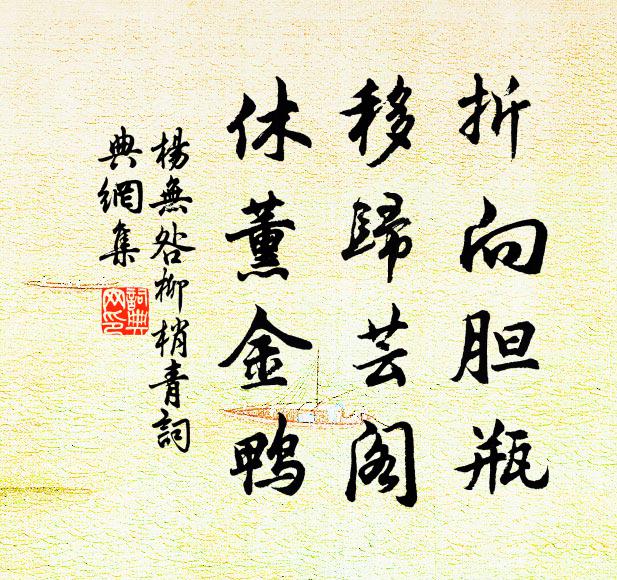 折向胆瓶
移歸芸阁
休薰金鸭
楊無咎柳梢青詞
典網集
詞典网印